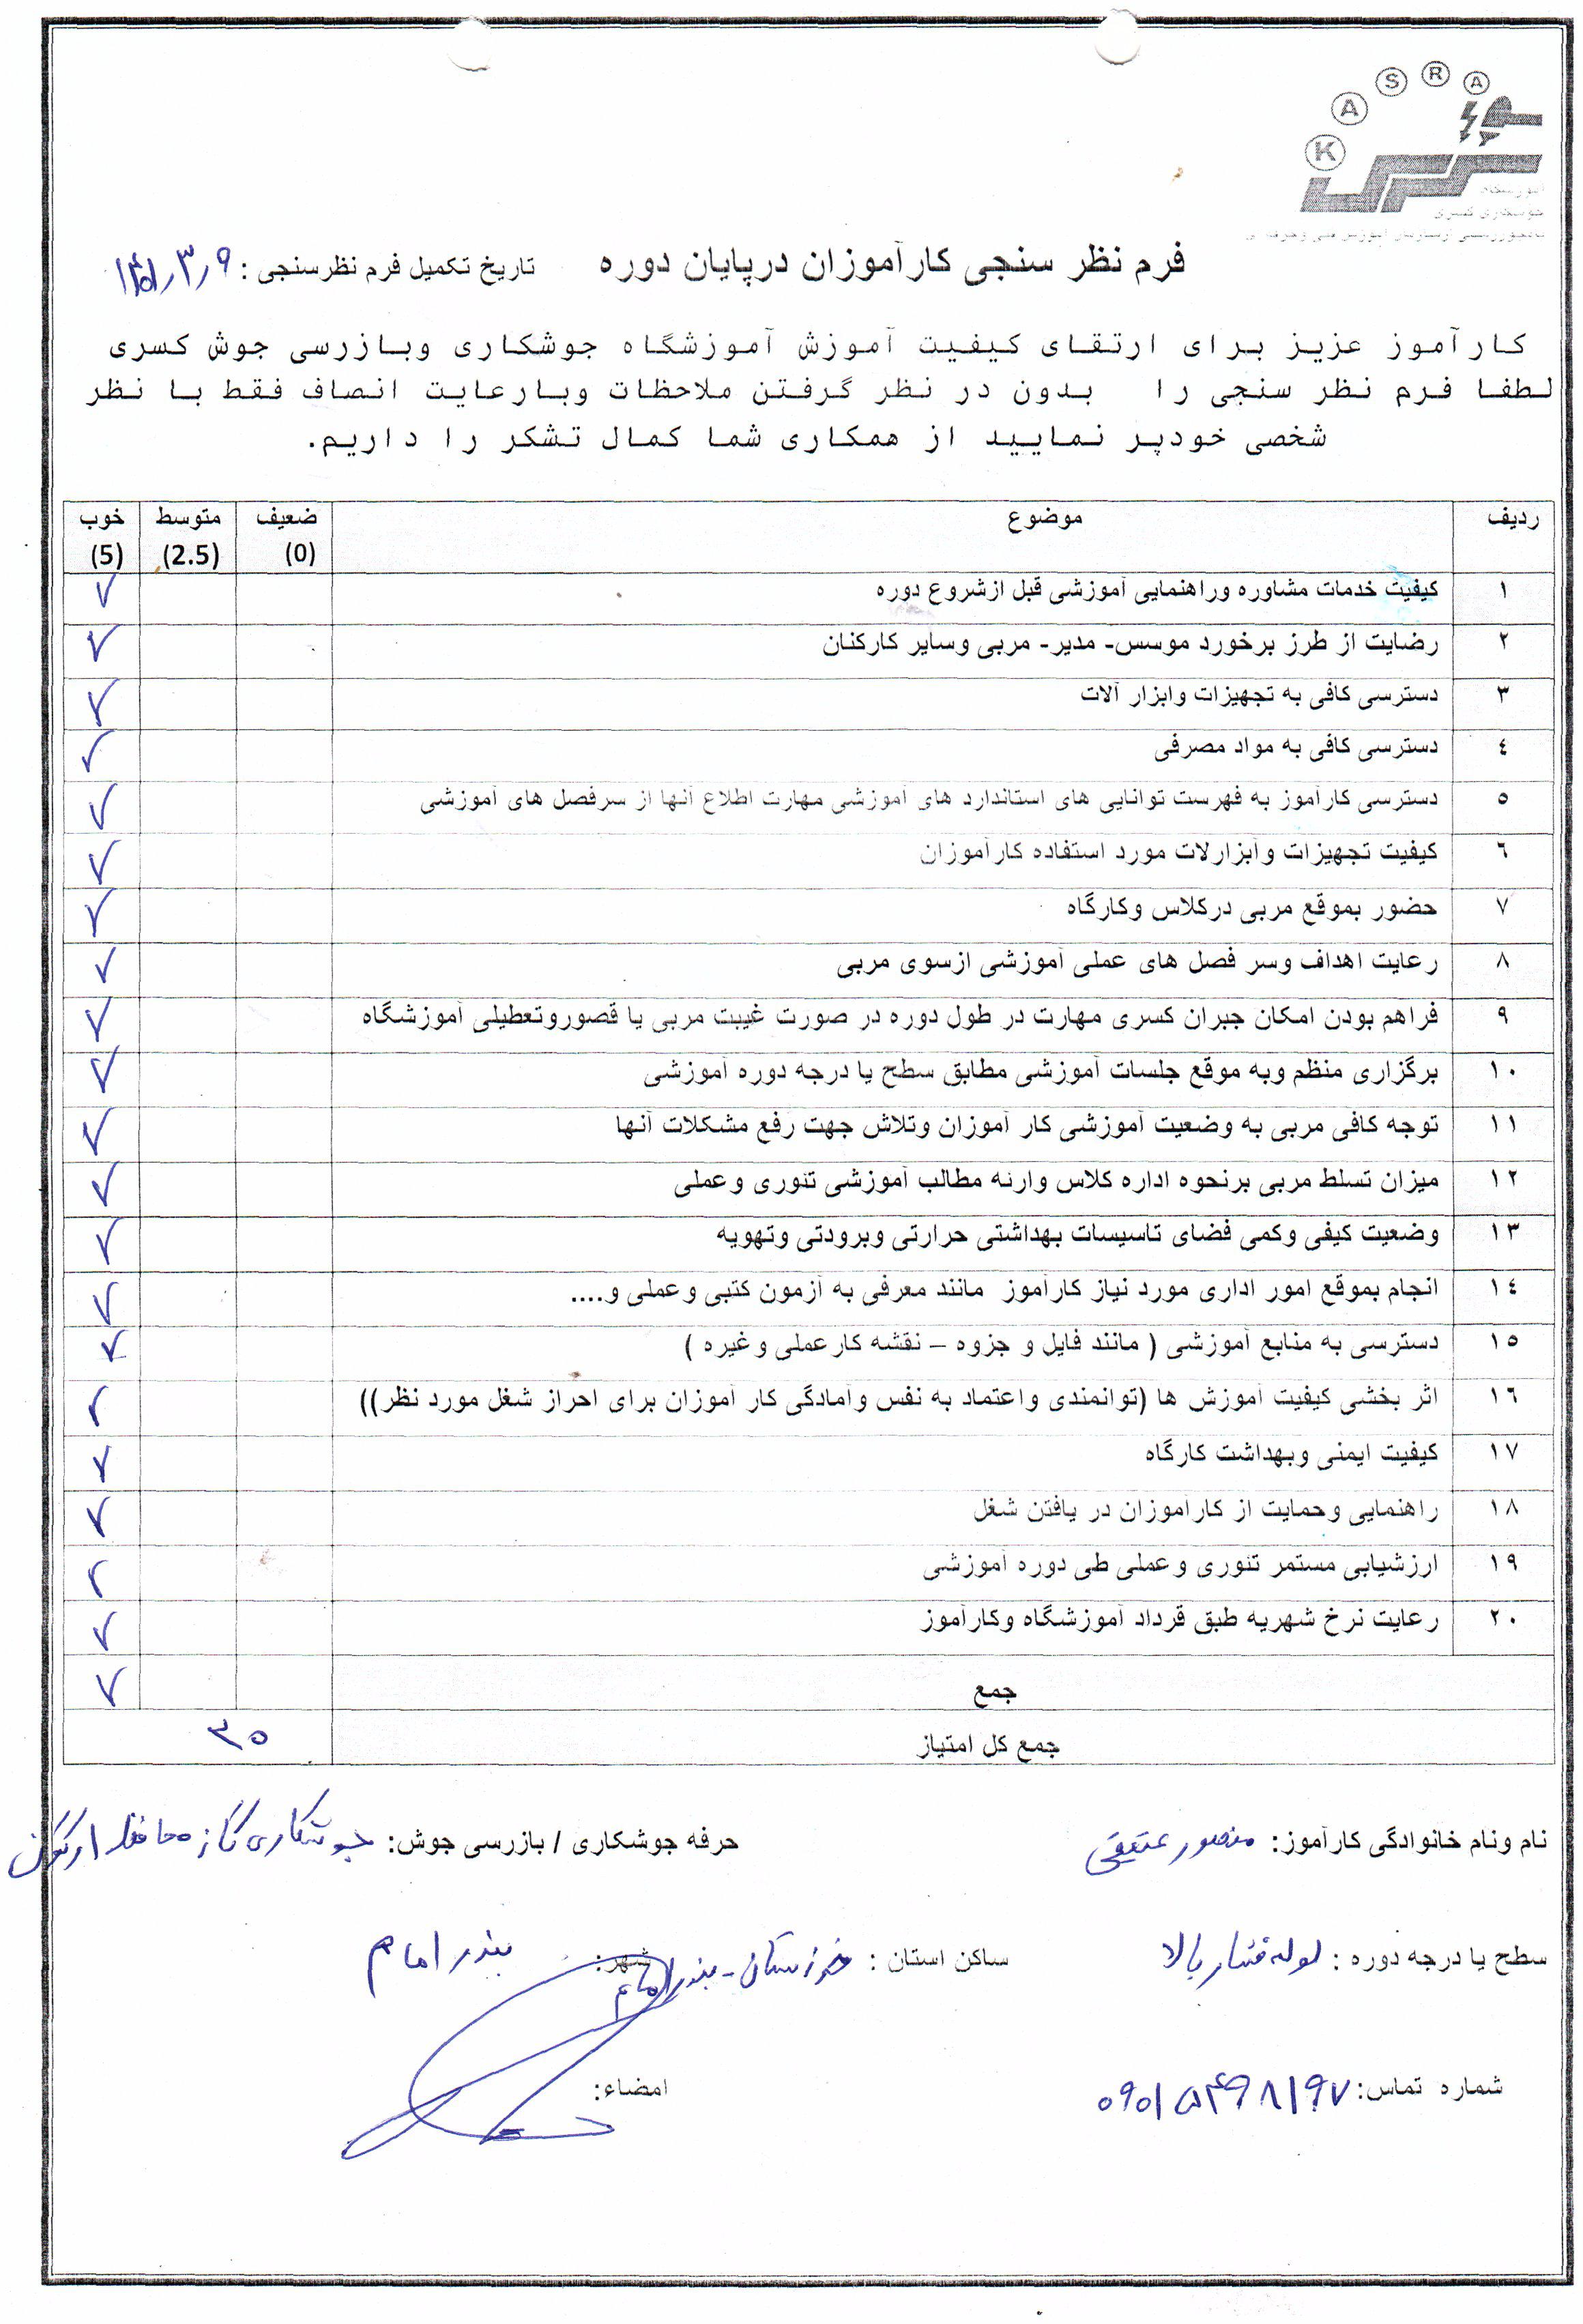 K A S R A
فرم نظر سنجی کارآموزان درپایان دوره تاریخ تکمیل فرم نظرسنجی : ۱۴۰۱٫۳٫۹
کارآموز عزیز برای ارتقای کیفیت آموزش آموزشگاه جوشکاری وبازرسی جوش کسری
لطفا فرم نظر سنجی را بدون در نظر گرفتن ملاحظات وبارعایت انصاف فقط با نظر
شخصی خودپر نمایید از همکاری شما کمال تشکر را داریم.
ردیف موضوع ضعیف (0) متوسط (2.5) خوب (5)
۱ کیفیت خدمات مشاوره وراهنمایی آموزشی قبل ازشروع دوره ✓
۲ رضایت از طرز برخورد موسس- مدیر- مربی وسایر کارکنان ✓
۳ دسترسی کافی به تجهیزات وابزار آلات ✓
٤ دسترسی کافی به مواد مصرفی ✓
٥ دسترسی کارآموز به فهرست توانایی های استاندارد های آموزشی مهارت اطلاع آنها از سرفصل های آموزشی ✓
٦ کیفیت تجهیزات وابزارلات مورد استفاده کارآموزان ✓
۷ حضور بموقع مربی درکلاس وکارگاه ✓
۸ رعایت اهداف وسر فصل های عملی آموزشی ازسوی مربی ✓
۹ فراهم بودن امکان جبران کسری مهارت در طول دوره در صورت غیبت مربی یا قصوروتعطیلی آموزشگاه ✓
۱۰ برگزاری منظم وبه موقع جلسات آموزشی مطابق سطح یا درجه دوره آموزشی ✓
۱۱ توجه کافی مربی به وضعیت آموزشی کار آموزان وتلاش جهت رفع مشکلات آنها ✓
۱۲ میزان تسلط مربی برنحوه اداره کلاس وارئه مطالب آموزشی تئوری وعملی ✓
۱۳ وضعیت کیفی وکمی فضای تاسیسات بهداشتی حرارتی وبرودتی وتهویه ✓
۱٤ انجام بموقع امور اداری مورد نیاز کارآموز مانند معرفی به آزمون کتبی وعملی و.... ✓
۱٥ دسترسی به منابع آموزشی ( مانند فایل و جزوه – نقشه کارعملی وغیره ) ✓
۱٦ اثر بخشی کیفیت آموزش ها (توانمندی واعتماد به نفس وآمادگی کار آموزان برای احراز شغل مورد نظر)) ✓
۱۷ کیفیت ایمنی وبهداشت کارگاه ✓
۱۸ راهنمایی وحمایت از کارآموزان در یافتن شغل ✓
۱۹ ارزشیابی مستمر تئوری وعملی طی دوره آموزشی ✓
۲۰ رعایت نرخ شهریه طبق قرداد آموزشگاه وکارآموز ✓
جمع ✓
جمع کل امتیاز ۳۵
نام ونام خانوادگی کارآموز: منصور عتیقی حرفه جوشکاری / بازرسی جوش: جوشکاری گاز محافظ ارگون
سطح یا درجه دوره : لوله فشار بالا ساکن استان : خوزستان - بندر امام شهر: بندر امام
شماره تماس: ۰۹۰۱۵۴۹۸۱۹۷ امضاء: